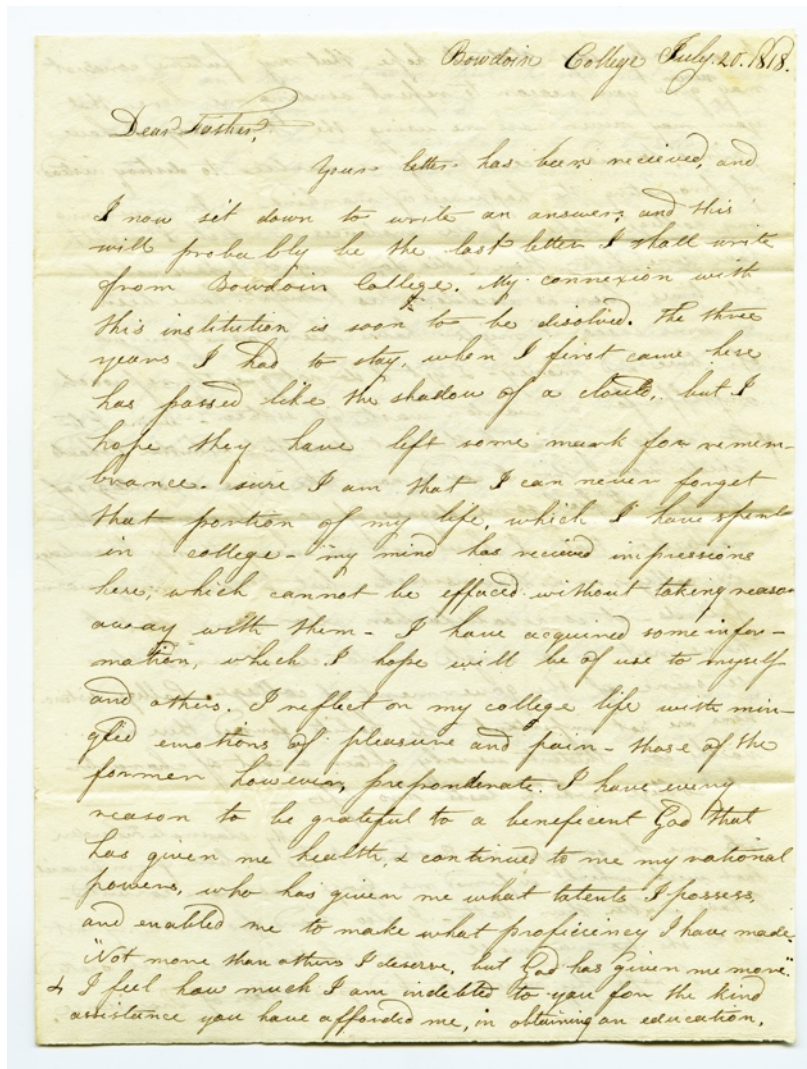 Bowdoin College July. 20. 1818.
Dear Father,
Your letter has been recieved, and
I now sit down to write an answer; and this
will probably be the last letter I shall write
from Bowdoin College. My connexion with
this institution is soon to be disolved. The three
years I had to stay, when I first came here
has passed like the shadow of a cloud, but I
hope they have left some mark for remem-
brance. sure I am that I can never forget
that portion of my life, which I have spent
in college - my mind has recieved impressions
here, which cannot be effaced without taking reason
away with them - I have acquired some infor-
mation, which I hope will be of use to myself
and others. I reflect on my college life with min-
gled emotions of pleasure and pain - those of the
former however, preponderate. I have every
reason to be grateful to a beneficent God that
has given me health, & continued to me my rational
powers, who has given me what talents I possess,
and enabled me to make what proficiency I have made.
"Not more than others I deserve, but God has given me more."
& I feel how much I am indebted to you for the kind
assistance you have afforded me, in obtaining an education.